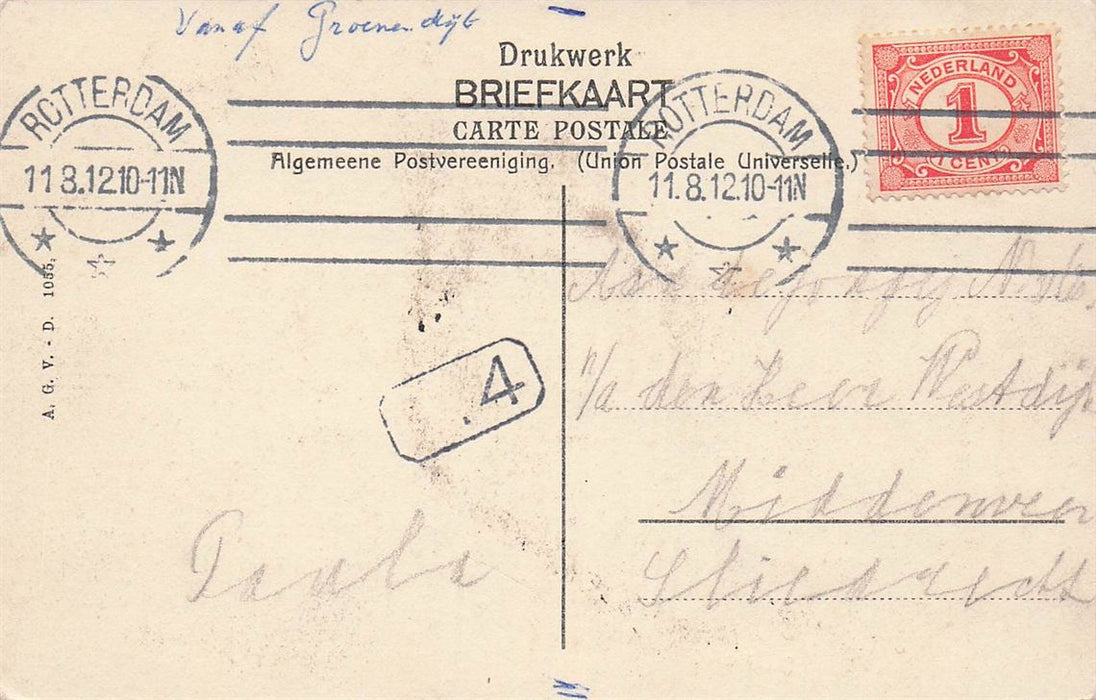 Vanaf Groenendijk
Drukwerk
BRIEFKAART
CARTE POSTALE
Algemeene Postvereeniging. (Union Postale Universelle.)
ROTTERDAM
11 8.12.10-11N
ROTTERDAM
11.8.12.10-11N
NEDERLAND
1
1 CENT
A. G. V. - D. 1055.
.4
den Heer Westdijk
Middenveer
Sliedrecht